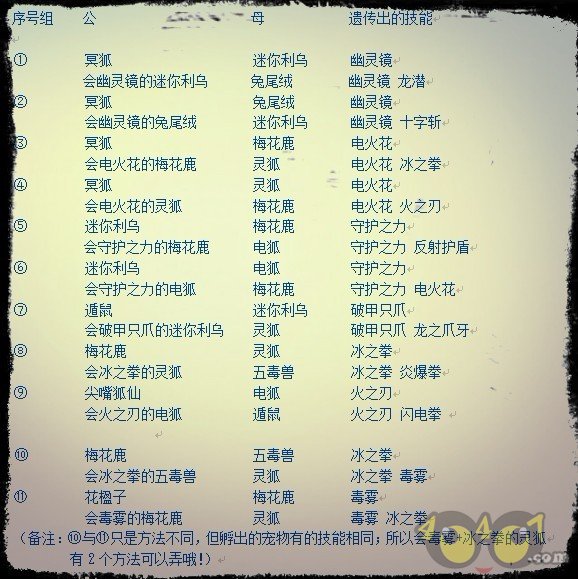 序号组 公 母 遗传出的技能
① 冥狐 迷你利乌 幽灵镜
会幽灵镜的迷你利乌 兔尾绒 幽灵镜 龙潜
② 冥狐 兔尾绒 幽灵镜
会幽灵镜的兔尾绒 迷你利乌 幽灵镜 十字斩
③ 冥狐 梅花鹿 电火花
会电火花的梅花鹿 灵狐 电火花 冰之拳
④ 冥狐 灵狐 电火花
会电火花的灵狐 梅花鹿 电火花 火之刃
⑤ 迷你利乌 梅花鹿 守护之力
会守护之力的梅花鹿 电狐 守护之力 反射护盾
⑥ 迷你利乌 电狐 守护之力
会守护之力的电狐 梅花鹿 守护之力 电火花
⑦ 遁鼠 迷你利乌 破甲只爪
会破甲只爪的迷你利乌 灵狐 破甲只爪 龙之爪牙
⑧ 梅花鹿 灵狐 冰之拳
会冰之拳的灵狐 五毒兽 冰之拳 炎爆拳
⑨ 尖嘴狐仙 电狐 火之刃
会火之刃的电狐 遁鼠 火之刃 闪电拳
⑩ 梅花鹿 五毒兽 冰之拳
会冰之拳的五毒兽 灵狐 冰之拳 毒雾
⑪ 花楹子 梅花鹿 毒雾
会毒雾的梅花鹿 灵狐 毒雾 冰之拳
（备注：⑩与⑪只是方法不同，但孵出的宠物有的技能相同；所以会毒雾+冰之拳的灵狐
有2个方法可以弄哦!）
40407
.com